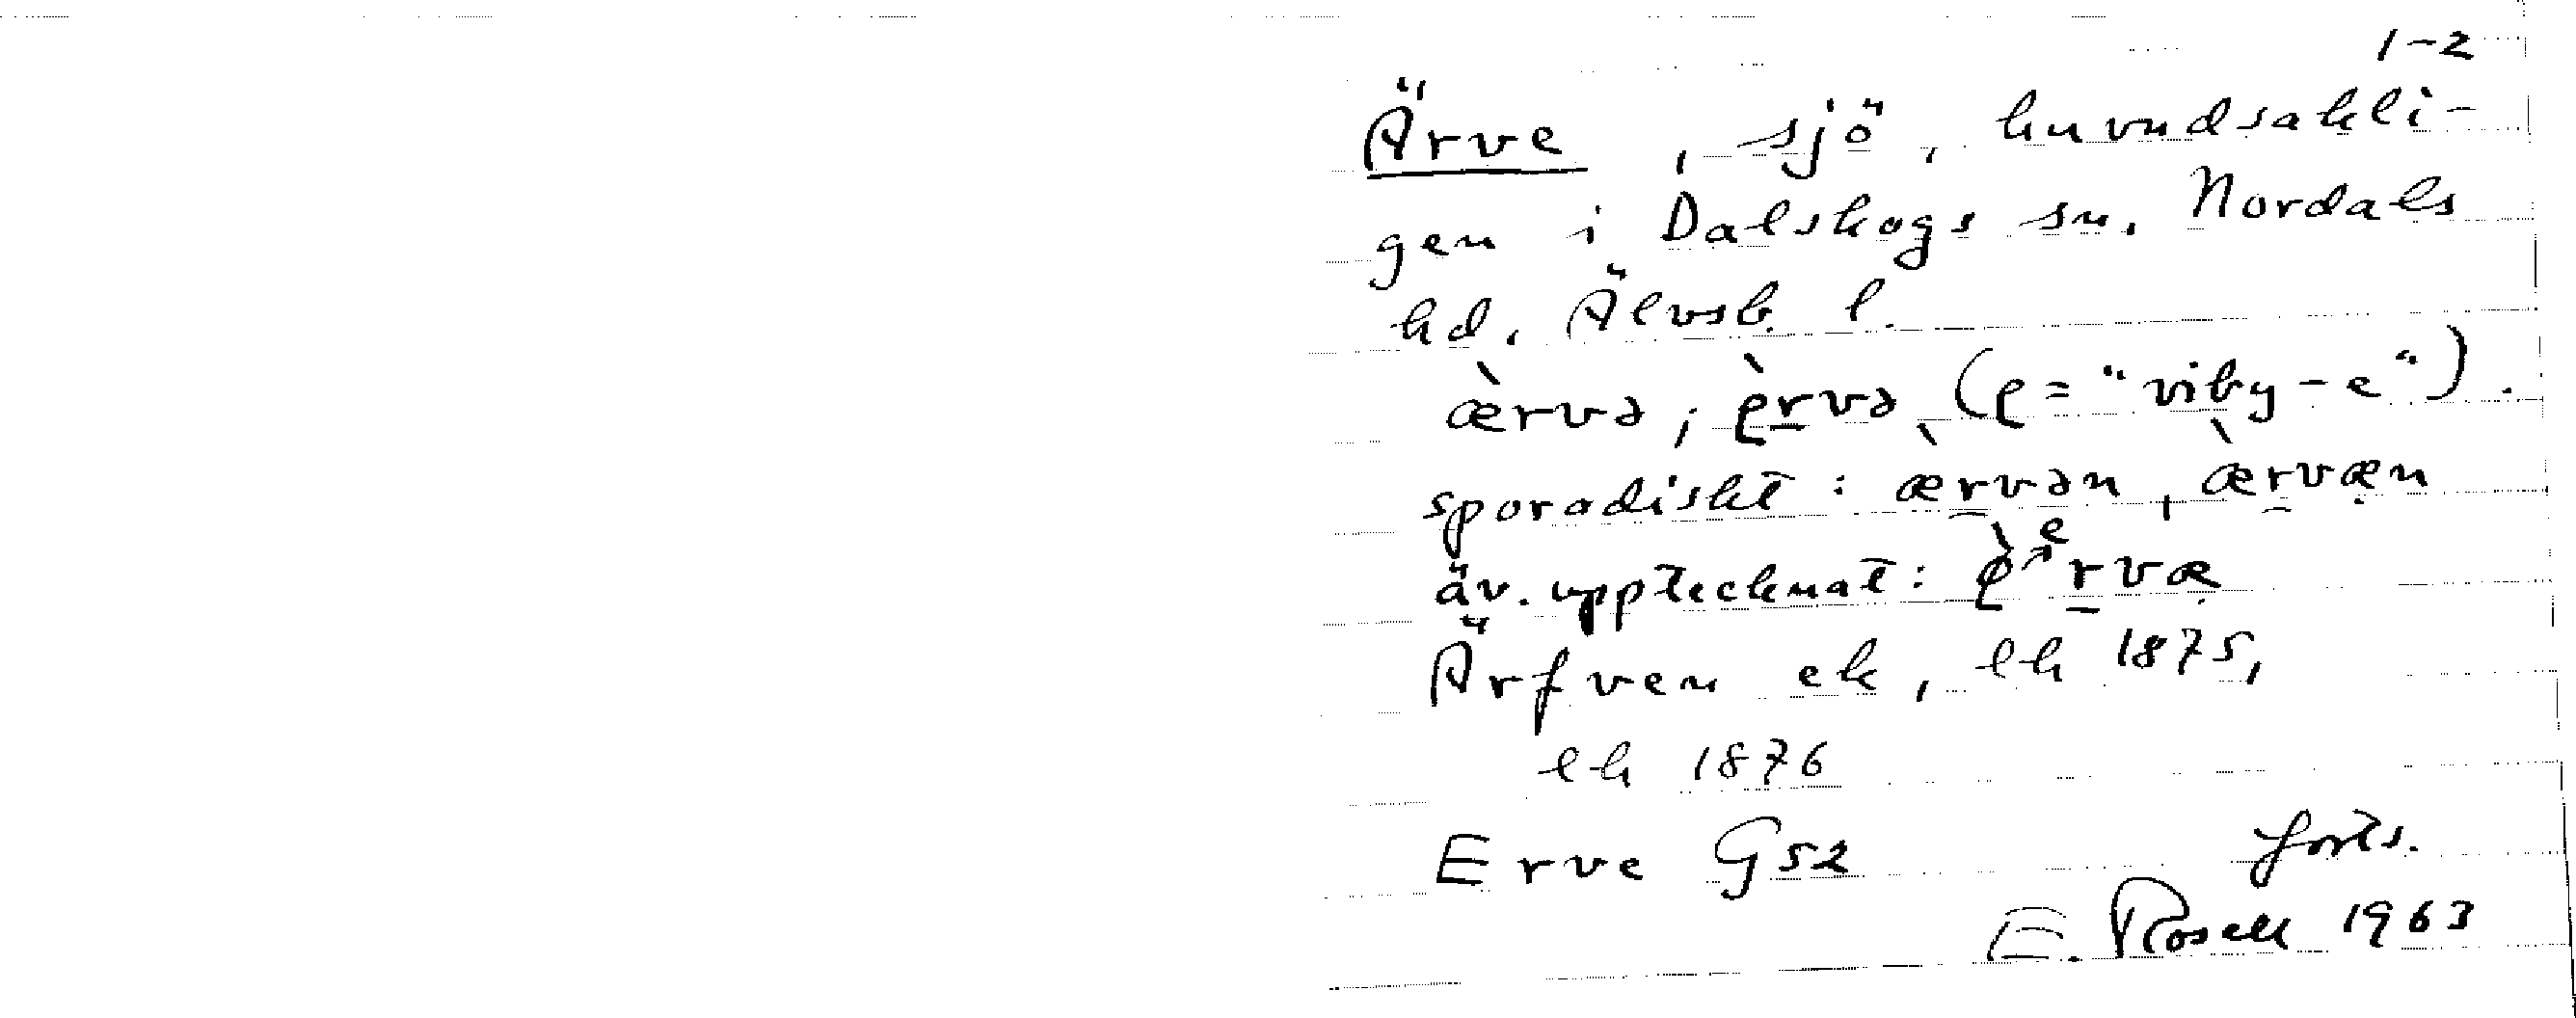 1-2
Ärve, sjö, huvudsakli-
gen i Dalskogs sn. Nordals
hd. Älvsb. l.
æ̀rvə, ę̀r̲və (ę = "viby-e").
sporadiskt: æ̀r̲vən, æ̀r̲væn
äv. upptecknat: r̲væ
Ärfven ek, lk 1875,
lk 1876
Erve G52 forts.
E. Rosell 1963